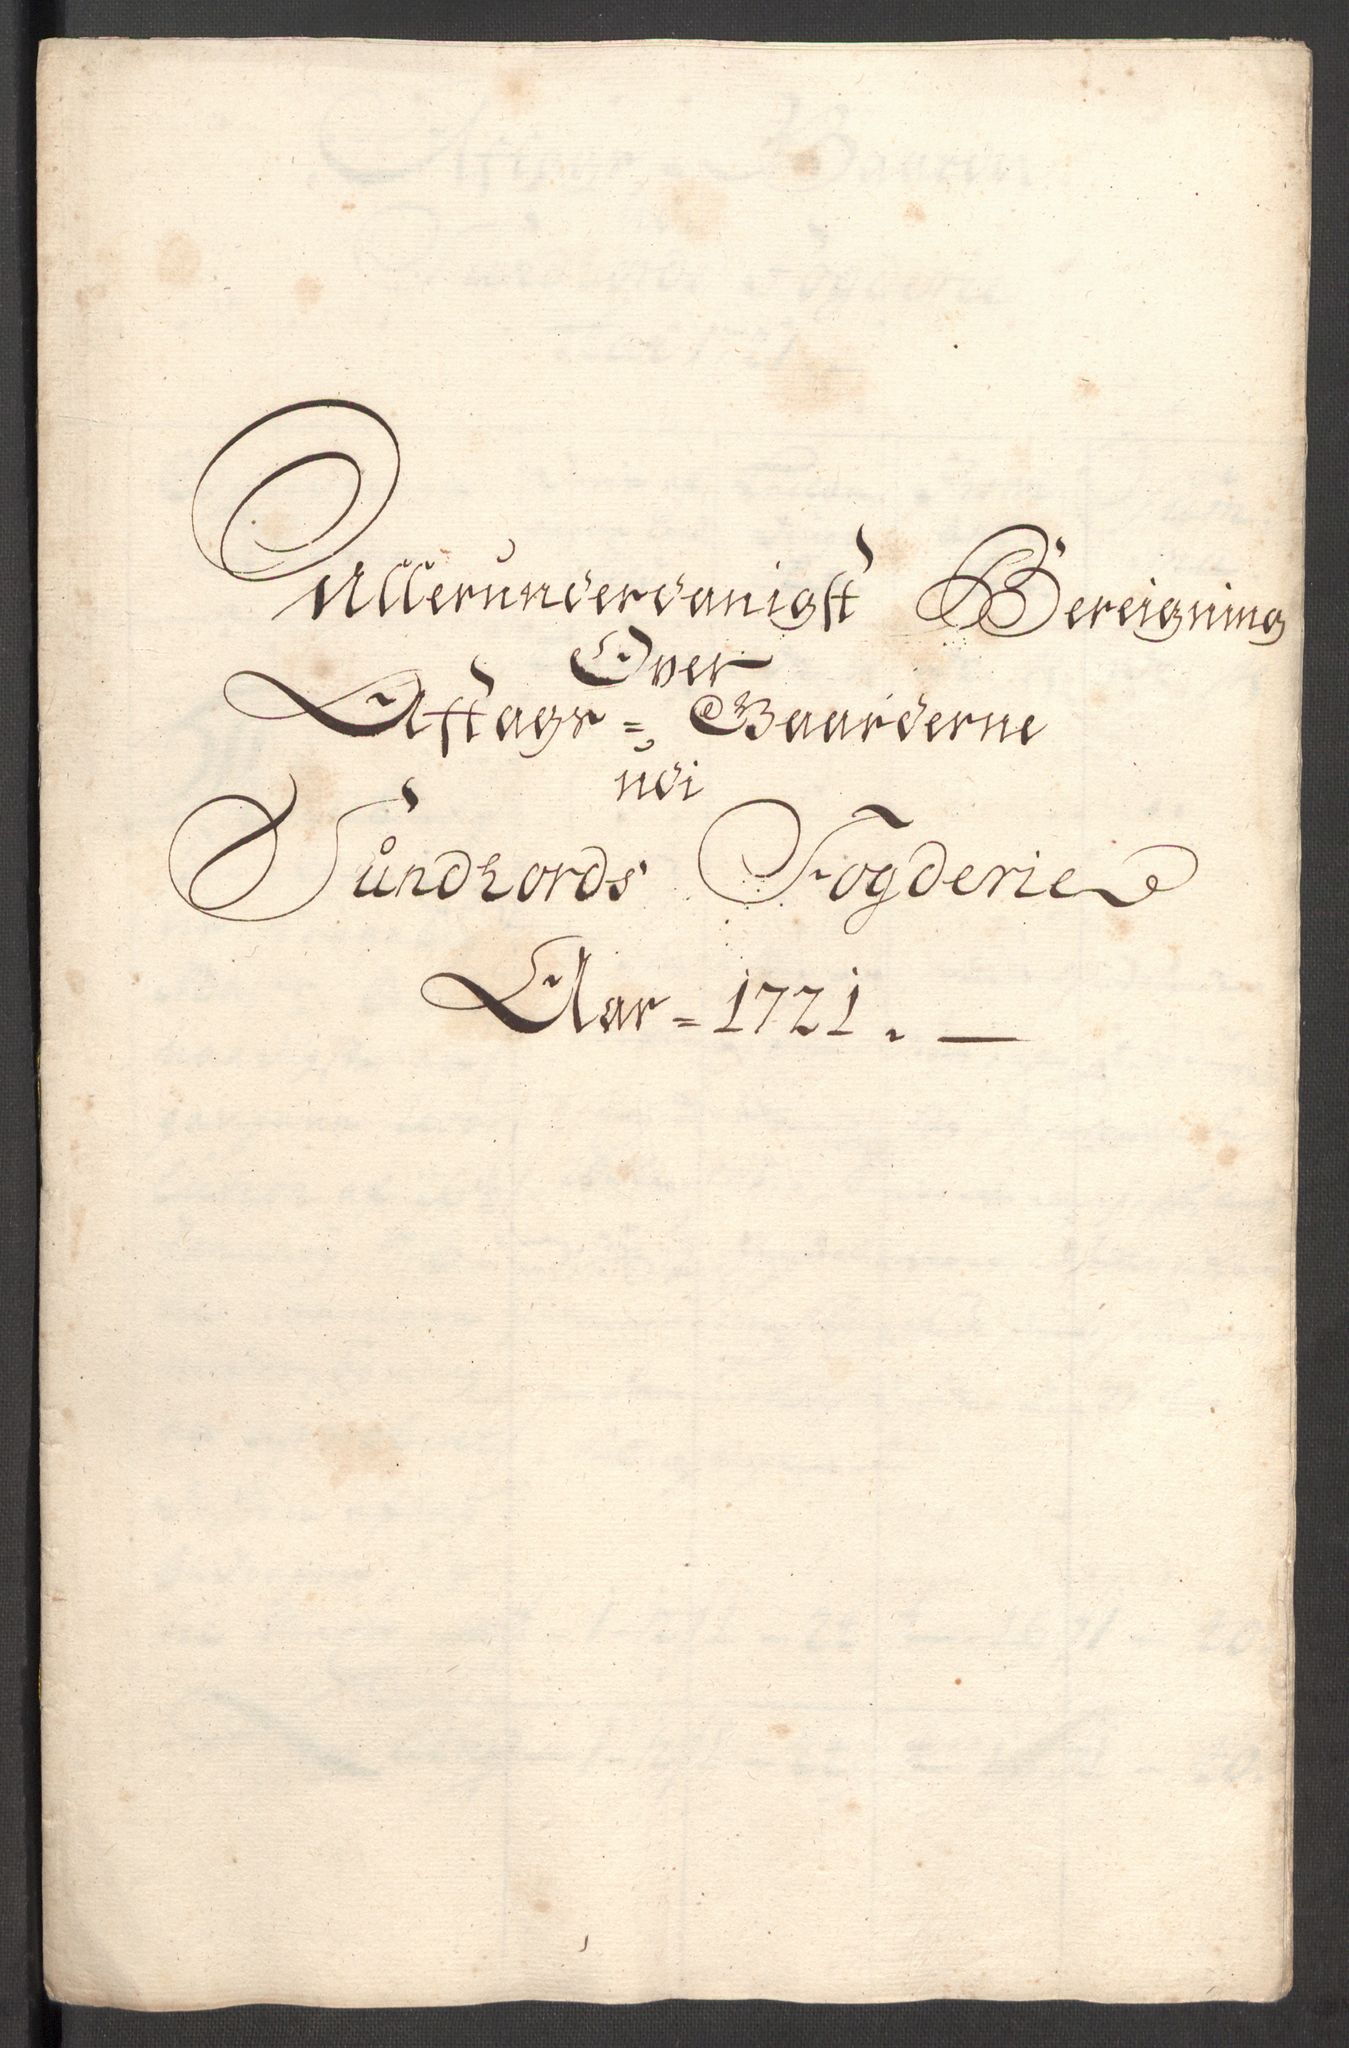 Allerunderdanigst Bereigning
Over
Aftags = Gaarderne
udi
Sundhords Fogderie
Aar = 1721. —